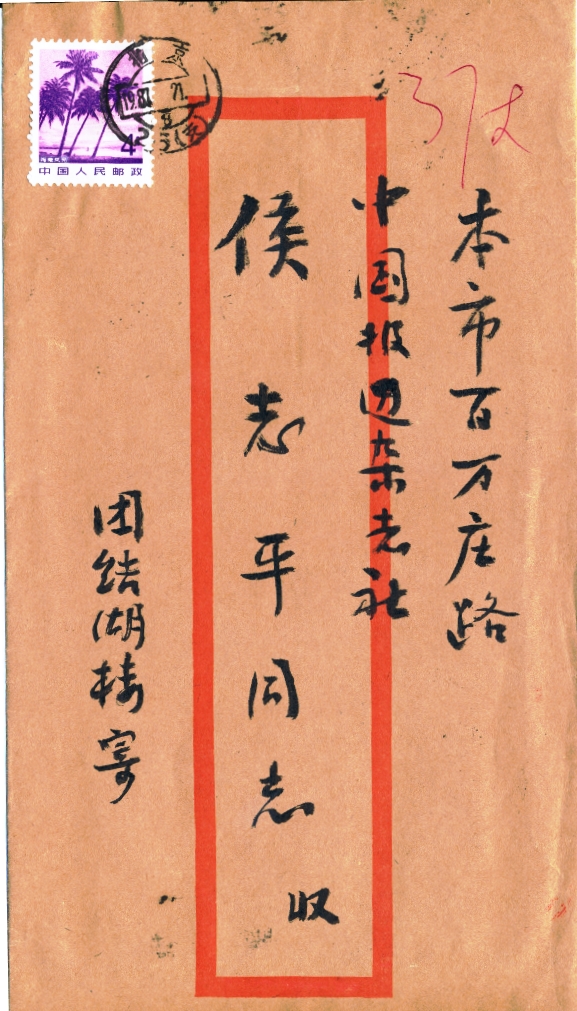 本市百万庄路
中国报道杂志社
侯志平同志
收
团结湖楼寄
37
4
中国人民邮政